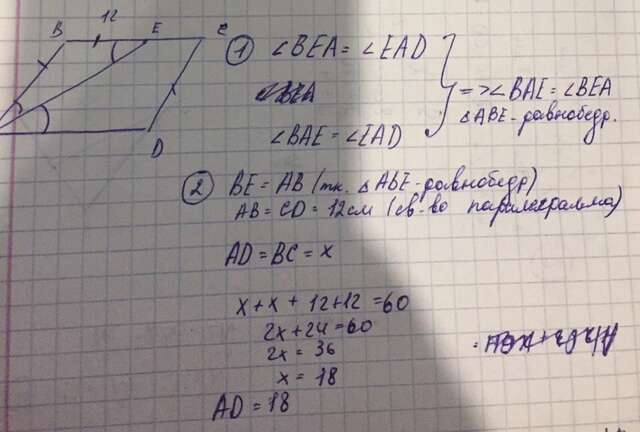 12
B E C
D
① ∠BEA = ∠EAD
∠BAE = ∠EAD
=> ∠BAE = ∠BEA
△ABE - равнобедр.
② BE = AB (т.к. △ABE - равнобедр)
AB = CD = 12 см (св-во паралелграмма)
AD = BC = x
x + x + 12 + 12 = 60
2x + 24 = 60
2x = 36
x = 18
AD = 18